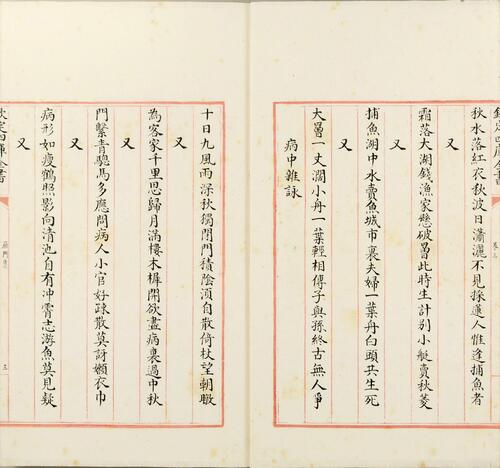 秋水落紅衣秋波日瀟灑不見採蓮人惟逢捕魚者
又
霜落大湖錢漁家懸破罾此時生計别小艇賣秋菱
又
捕魚湖中水賣魚城市裏夫婦一葉舟白頭共生死
又
大罾一丈濶小舟一葉輕相傳子與孫終古無人爭
病中雜詠
十日九風雨深秋獨閉門積陰須自散倚杖望朝暾
又
為客家千里思歸月滿樓木樨開欲盡病裏過中秋
又
門繫青驄馬多應問病人小官好疎散莫訝嬾衣巾
又
病形如瘦鶴照影向清池自有冲霄志游魚莫見疑
又
欽定四庫全書